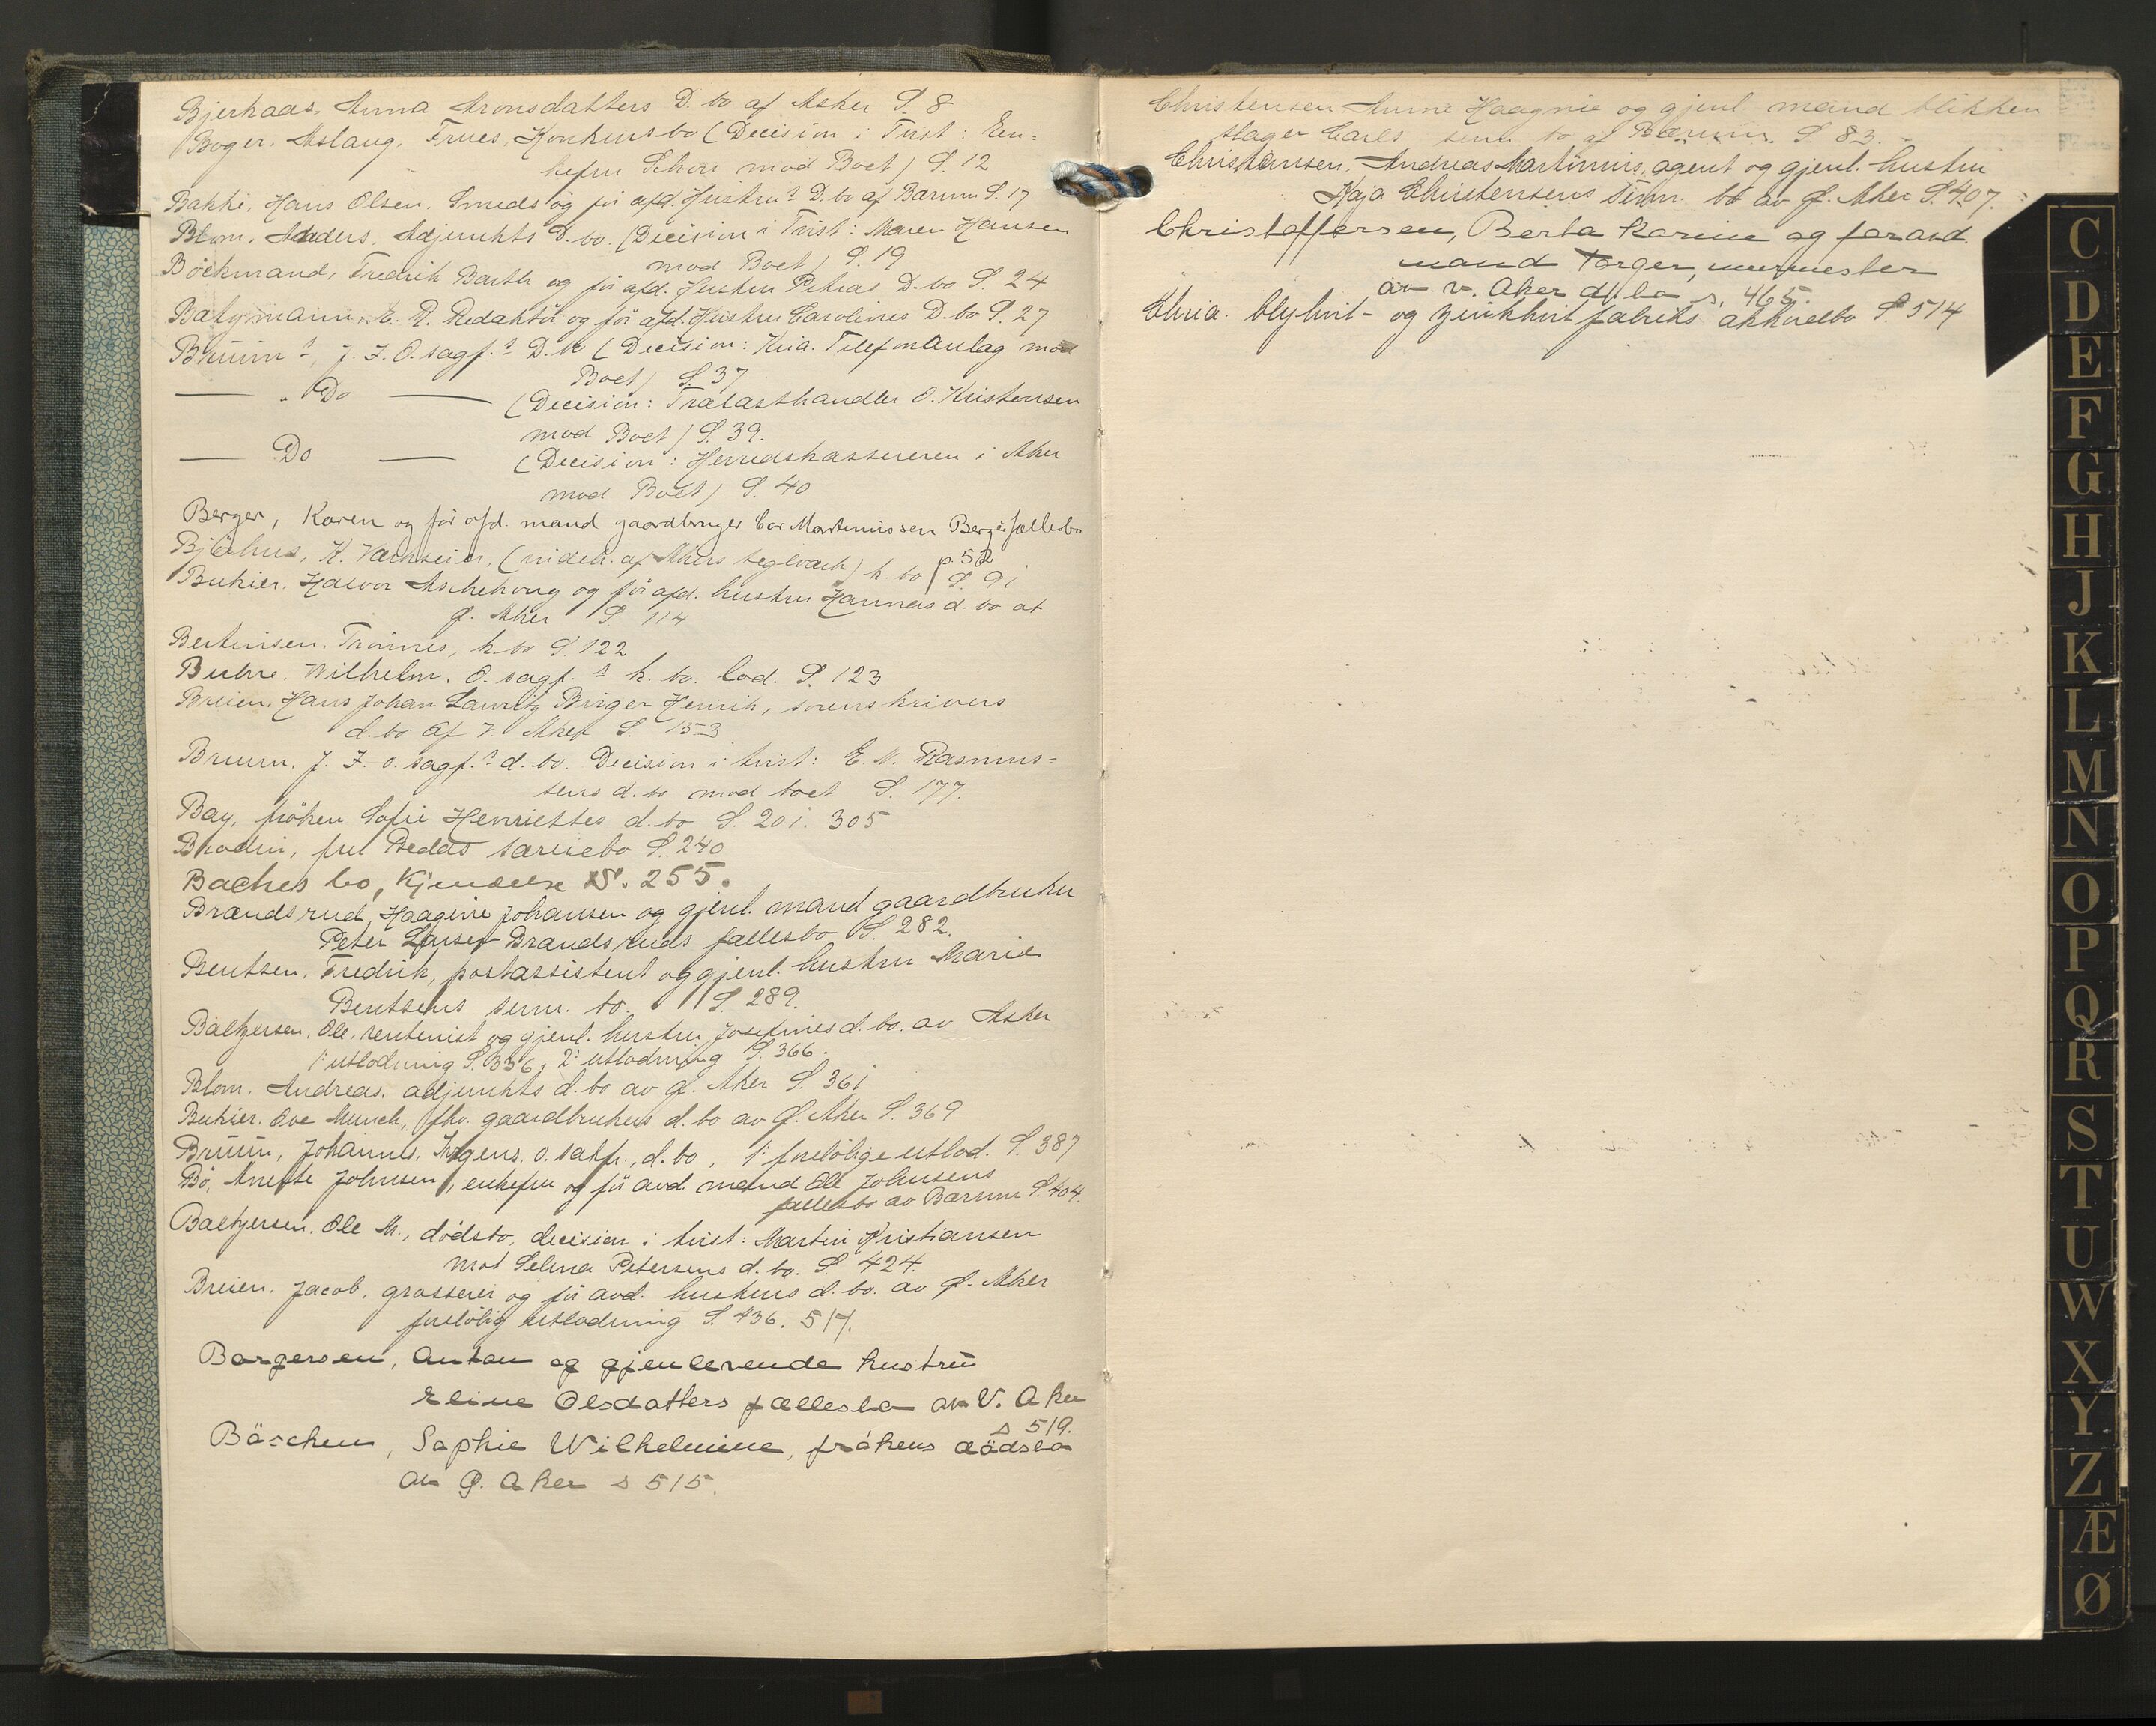 Bjerkaas, Anna Aronsdatters D. bo af Asker S. 8
Boger, Aslaug, Frues, Konkursbo (Decision i Tvist: En-
kefru Schou mod Boet) S. 12
Bakke, Hans Olsen, Smeds og før afd. Hustrus D. bo af Bærum S. 17
Blom, Anders, Adjunkts D. bo. (Decision i Tvist: Maren Hansen
mod Boet) S. 19
Böckmand, Fredrik Barth og før afd. Hustru Petras D. bo S. 24
Batzmann, E. R. Redaktør og før afd. Hustru Carolines D. bo S. 27
Bruun s, J. I. O. sagf. s D. bo (Decision: Kria. Telefonanlag mod
Boet) S. 37
— Do — (Decision: Trælasthandler O. Kristensen
mod Boet) S. 39.
— Do — (Decision: Herredskassereren i Aker
mod Boet) S. 40
Berger, Karen og før afd. mand gaardbruger Martinussen Berger fællesbo
p. 52
K. (indeh. af Akers teglverk) k. bo S. 91
Halvor Aschehoug og før afd. hustru Hannas d. bo af
Ø. Aker S. 114
Berntinsen, k. bo S. 122
Wilhelm, O. sagf. s k. bo. lod. S. 123
Breien, Hans Johan Lauritz Birger Henrik, sorenskrivers
d. bo af V. Aker S. 153
Bruun, J. I. o. sagf. s d. bo. Decision i tvist: E. N. Rasmus-
sens d. bo mod boet S. 177.
Bay, frøken Sofie Henriettes d. bo S. 201. 305
Brodin, fru Bedas særuebo S. 240
Baches bo, Kjendelse S. 255.
Brandsrud, Haagine Johansen og gjenl. mand gaardbruker
Peter Larsen Brandsruds fællesbo S. 282.
Bentsen, Fredrik, postassistent og gjenl. hustru Marie
Bentsens sam. bo. S. 289.
Baltzersen, Ole, rentenist og gjenl. hustru Josefines d. bo. av Asker
1: utlodning S. 336, 2: utlodning S. 366.
Blom, Andreas, adjunkts d. bo av Ø. Aker S. 361
Ove Munch, fhv. gaardbrukers d. bo av Ø. Aker S. 369
Bruun, Johannes Irgens, o. sakf., d. bo, 1: foreløbige utlod. S. 387
Bø, Anette Johnsen, enkefru og før avd. mand Ole Johnsens
fællesbo av Bærum S. 404.
Baltzersen, Ole M., dødsbo, decision i tvist: Martin Kristiansen
mot Selma Petersens d. bo. S. 424.
Breien, Jacob, grosserer og før avd. hustrus d. bo. av Ø. Aker
foreløbig utlodning S. 436. 517.
Borgersen, Anton og gjenlevende hustru
Eline Olsdatters fællesbo av V. Aker
s 519.
Bäschen, Sophie Wilhelmine, frøkens dødsbo
av Ø. Aker s 515.
Christensen Anne Haagine og gjenl. mand blikken
slager Carls sam. bo af Bærum. S. 83.
Christensen, Andreas Martinius, agent og gjenl. hustru
Kaja Christensens sam. bo av Ø. Aker S. 407.
Christoffersen, Berta Karine og foravd.
mand Torger, murmester
av v. Aker d. bo s. 465.
Chria. blyhvit- og zinkhvitfabriks akkordbo S. 514
C
D
E
F
G
H
J
K
L
M
N
O
P
Q
R
S
T
U
W
X
Y
Z
Æ
Ø